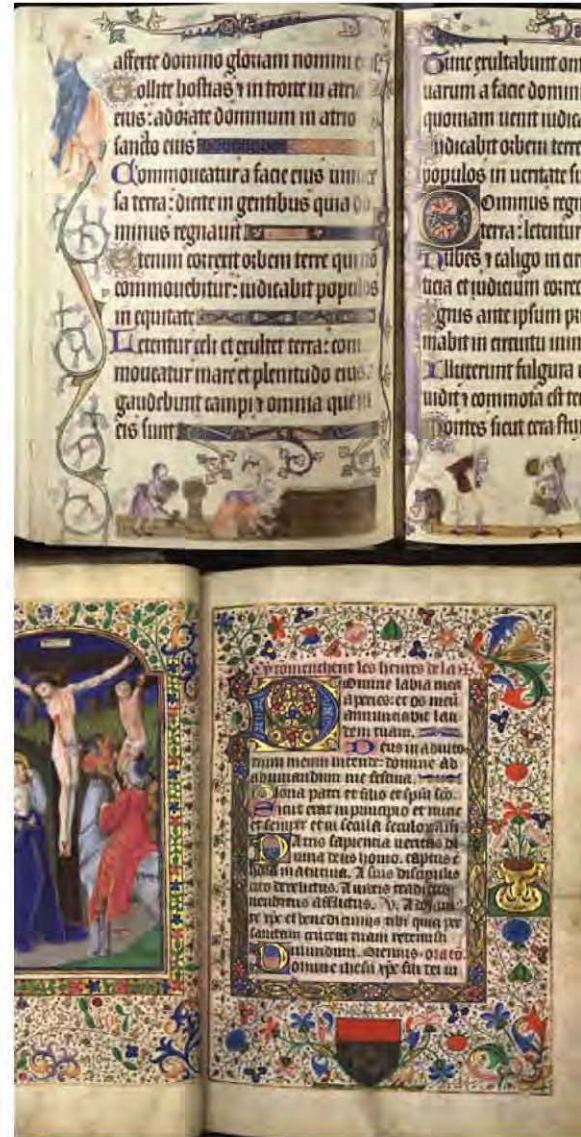 afferte domino gloriam nomini
Tollite hostias ⁊ in troite in atria
eius: adorate dominum in atrio
sancto eius
Commoueatur a facie eius uniuer
sa terra: dicite in gentibus quia do
minus regnauit
Etenim correxit orbem terre qui nō
commouebitur: iudicabit populos
in equitate
Letentur celi et exultet terra: com
moueatur mare et plenitudo eius
gaudebunt campi ⁊ omnia que in
eis sunt
Tunc exultabunt om
uarum a facie domini
quoniam uenit iudica
iudicabit orbem terre
populos in ueritate su
Dominus regn
terra: letentur
Nubes ⁊ caligo in cir
ticia et iudicium correc
Ignis ante ipsum pr
mabit in circuitu inim
Illuxerunt fulgura
uidit ⁊ commota est ter
Montes sicut cera flux
Cy commenchent les heures de la
Domine labia mea
aperies: et os meū
annunciabit lau
dem tuam.
Deus in adiuto
rium meum intende: domine ad
adiuuandum me festina.
Gloria patri et filio et spiū sco.
Sicut erat in principio et nunc
et semper et in secula seculorum
Patris sapientia ueritas di
uina deus homo. captus e
hora matutina. A suis discipulis
cito derelictus. A iudeis traditus
uenditus afflictus. V. Adoram
te xpe et benedicimus tibi quia per
sanctam crucem tuam redemisti
mundum. Oremus. oratō.
Domine ihesu xpē fili dei ui